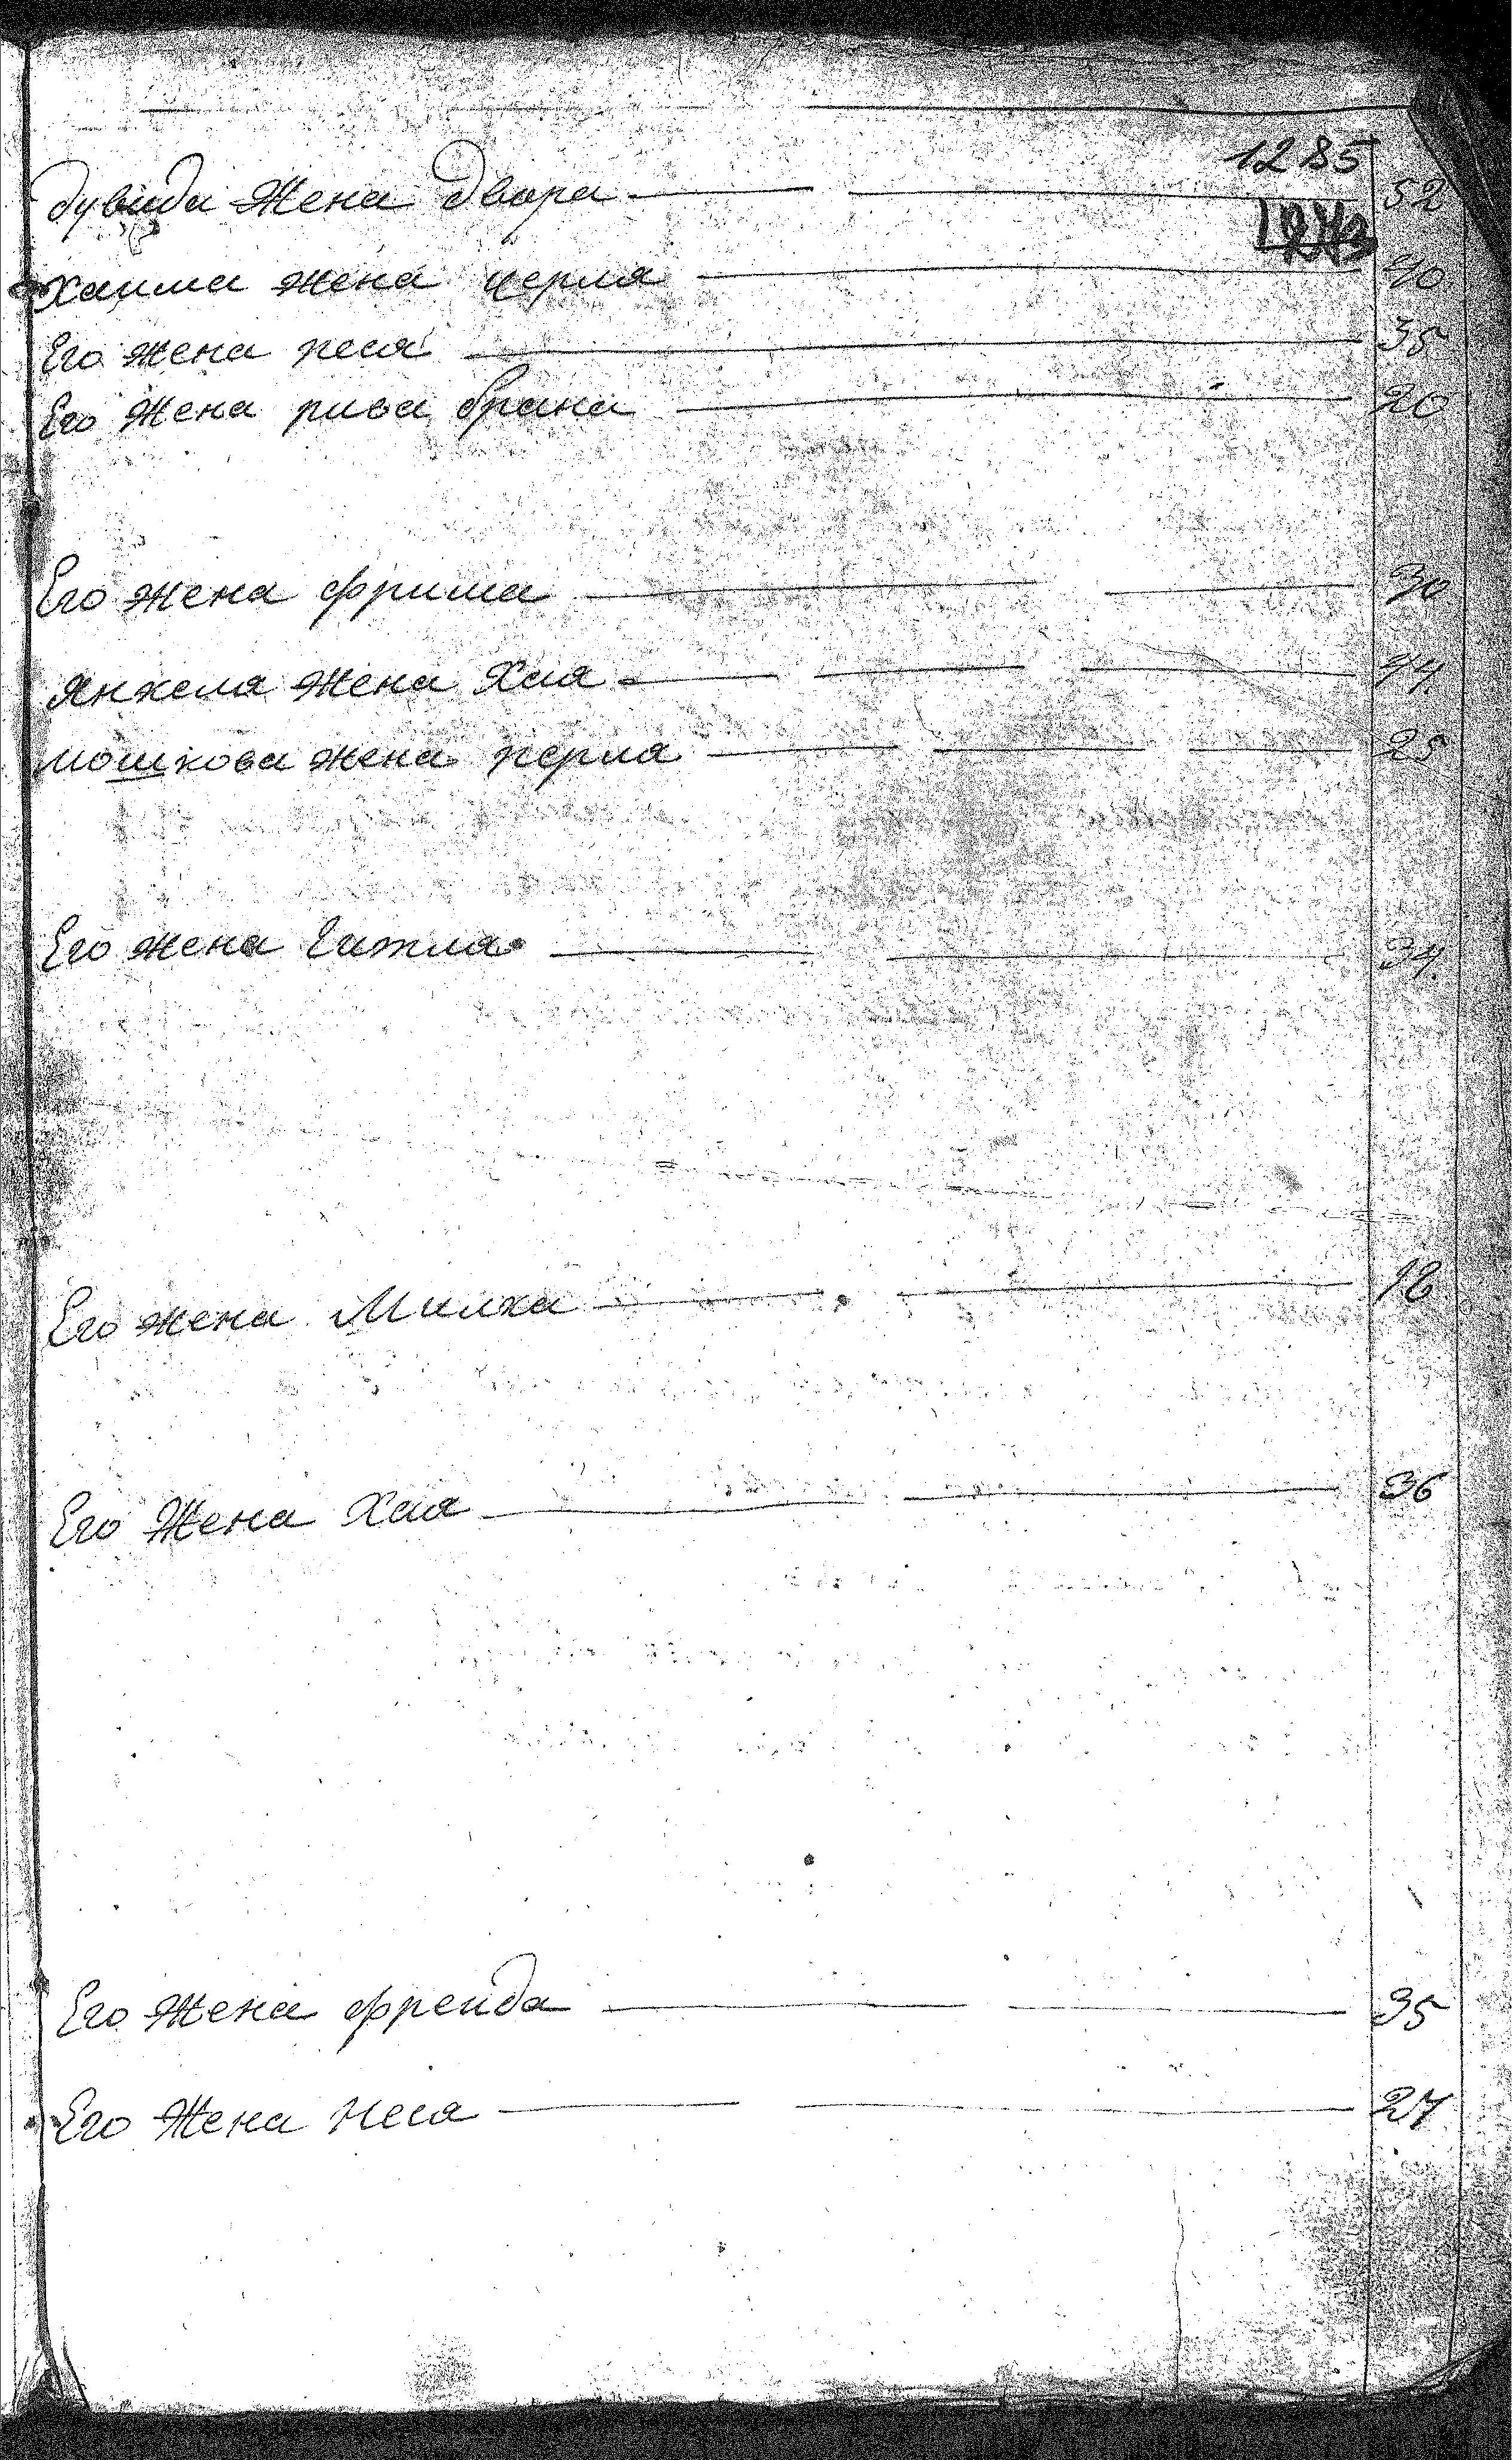 1285
дувида жена двора 52
1273
хаима жена церля 40
Его жена песя 35
Его жена рива брана 20
Его жена фрима 30
Янкеля жена Хая 44.
мошкова жена перля 25
Его жена Гитля 34.
Его жена Милка 18
Его жена Хая 36
Его жена фрейда 35
Его жена Неся 27